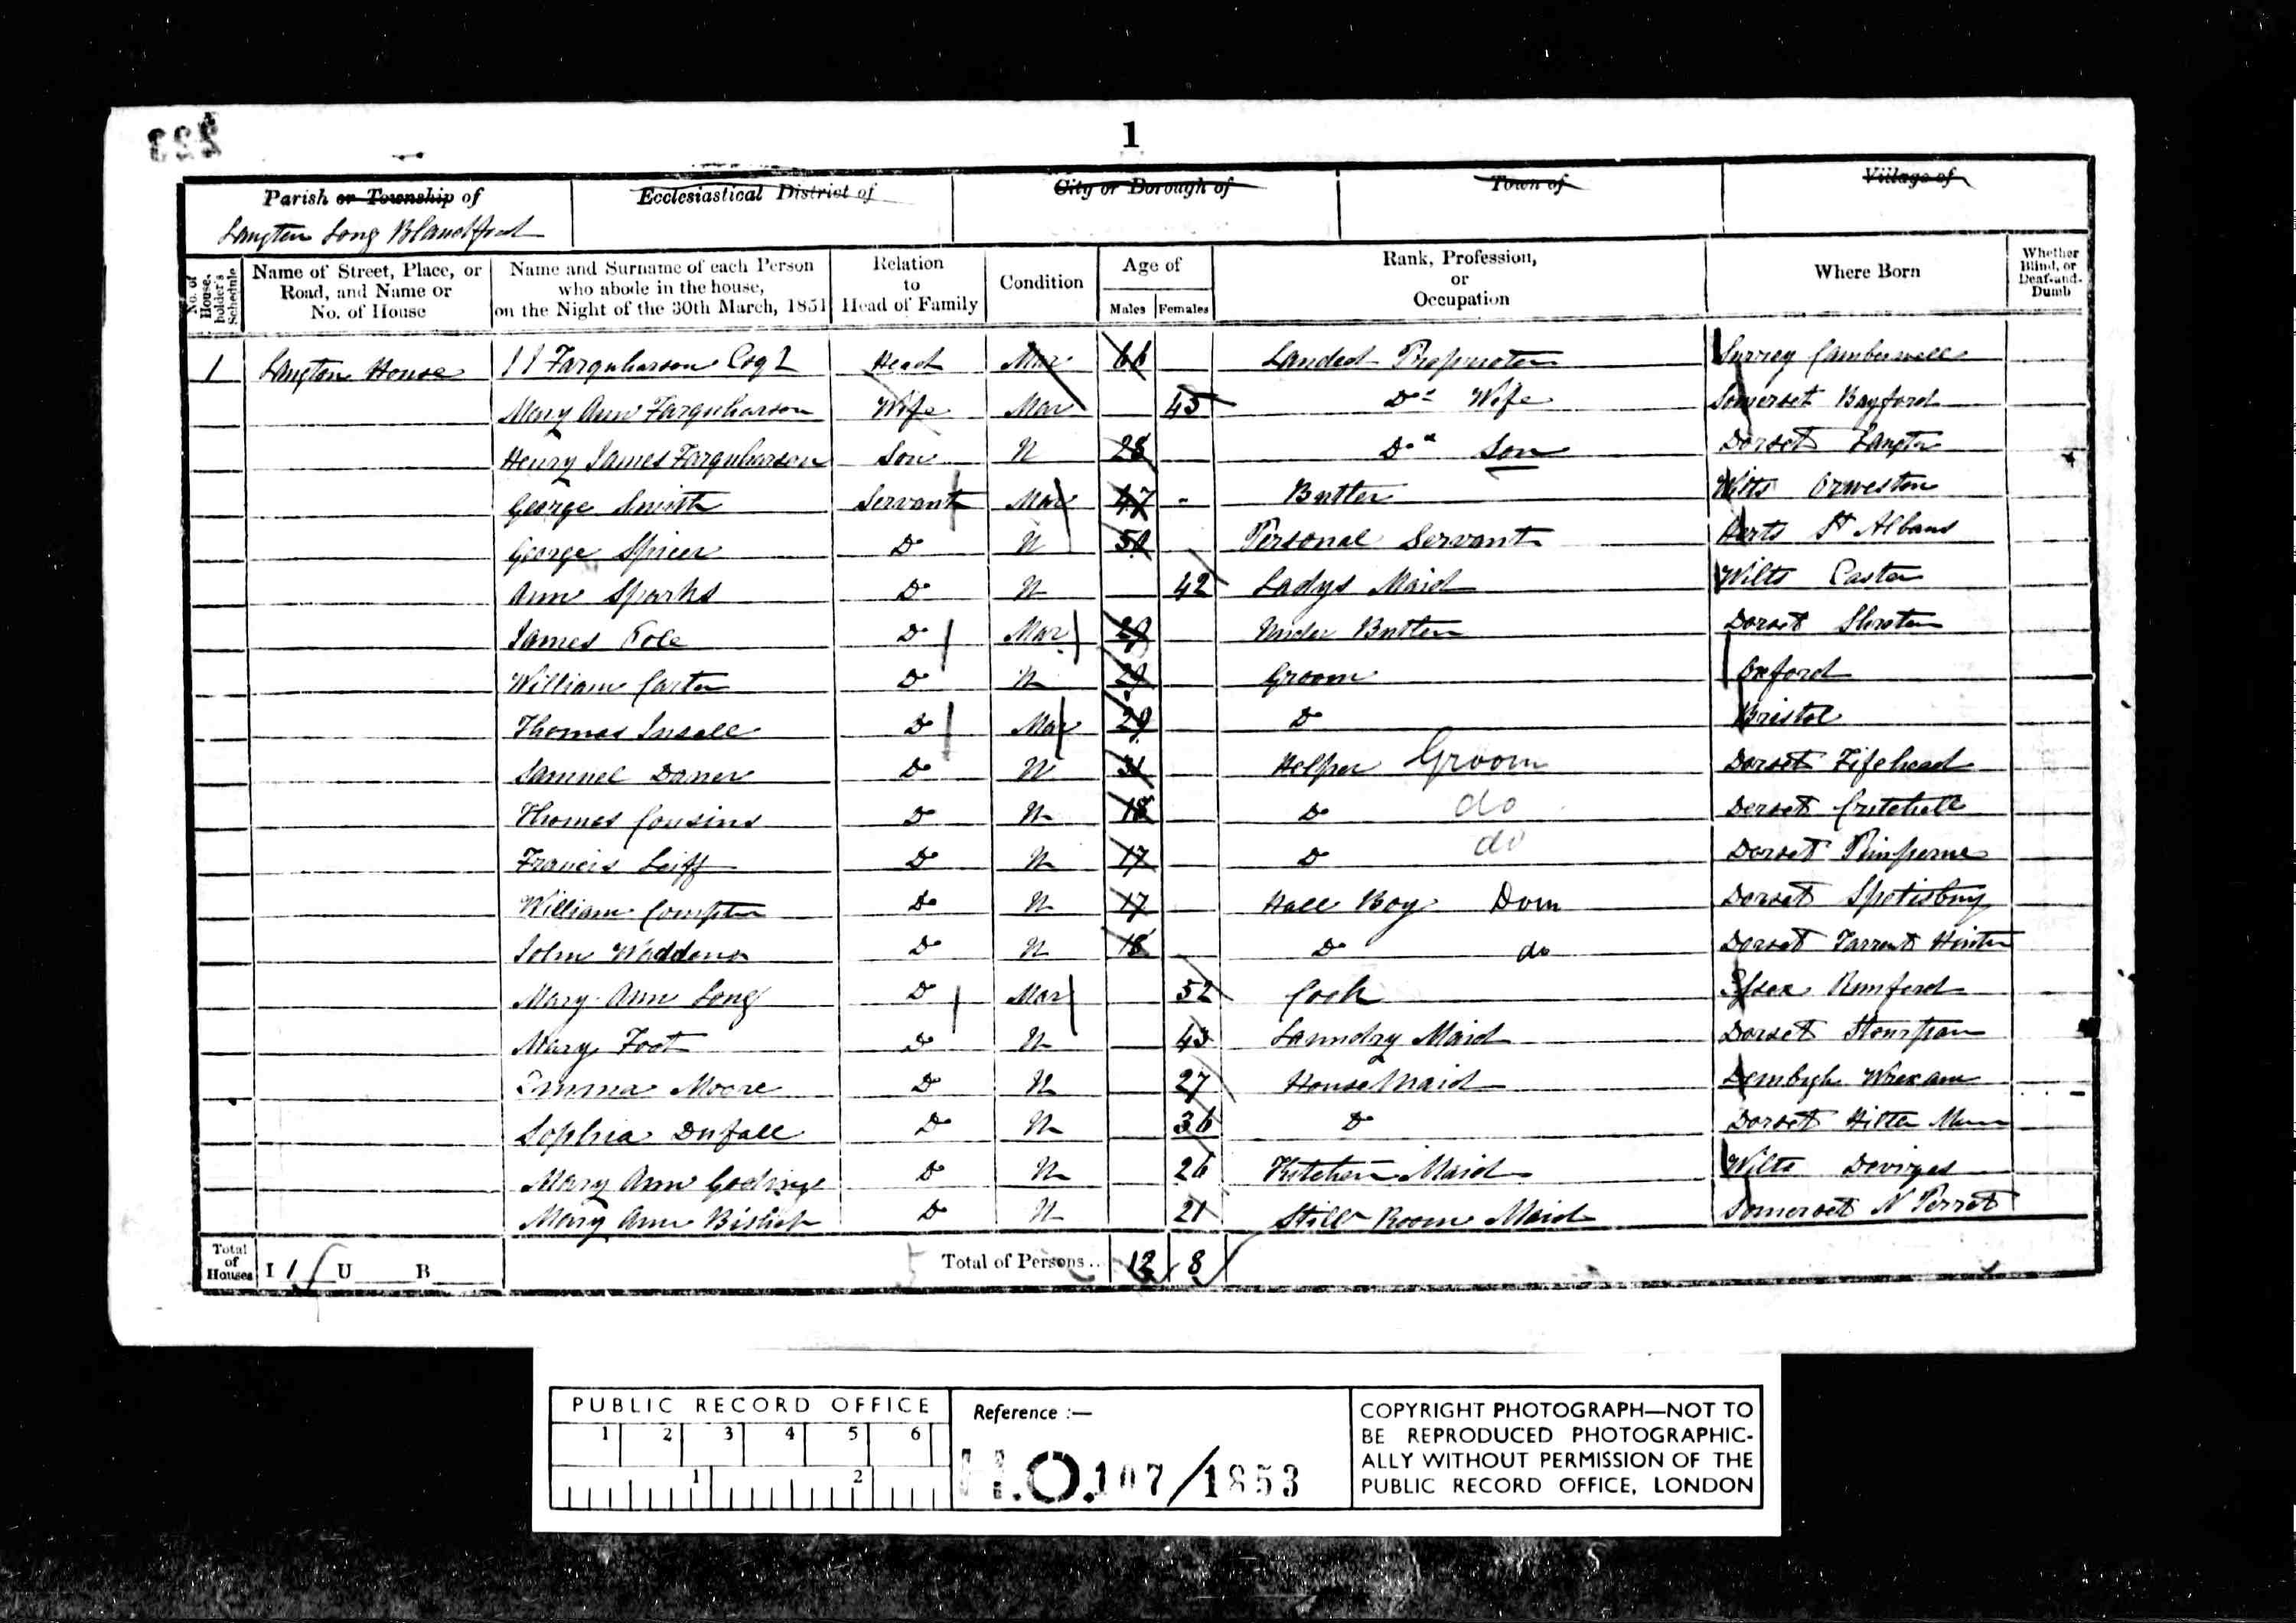 223
1
Parish or Township of
Ecclesiastical District of
City or Borough of
Town of
Village of
Langton Long Blandford
No. of House-holder's Schedule
Name of Street, Place, or Road, and Name or No. of House
Name and Surname of each Person who abode in the house, on the Night of the 30th March, 1851
Relation to Head of Family
Condition
Age of
Males Females
Rank, Profession, or Occupation
Where Born
Whether Blind, or Deaf-and-Dumb
1 Langton House J J Farquharson Esqr Head Mar 66 Landed Proprietor Surrey Camberwell
Mary Ann Farquharson Wife Mar 45 Do Wife Somerset Bayford
Henry James Farquharson Son U 28 Do Son Dorset Langton
George Smith Servant Mar 47 - Butler Wilts
George Spicer Do U Personal Servant Herts St Albans
Ann Sparks Do U 42 Ladys Maid Wilts
James Do Mar 29 Under Butler Dorset
William Carter Do U 29 Groom Oxford
Thomas Insall Do Mar 29 Do Bristol
Samuel Do U 31 Helper Groom Dorset Fifehead
Thomas Cousins Do U 18 Do do Dorset Critchell
Francis Do U 17 Do do Dorset Pimperne
William Compton Do U 17 Hall Boy Dom Dorset Spetisbury
John Do U 18 Do do Dorset Tarrent Hinton
Mary Ann Long Do Mar 52 Cook Essex Rumford
Mary Foot Do U 43 Laundry Maid Dorset Stourpain
Emma Moore Do U 27 House Maid Denbigh Wrexam
Sophia Dufall Do U 36 Do Dorset
Mary Ann Do U 26 Kitchen Maid Wilts Devizes
Mary Ann Bishop Do U 21 Still Room Maid Somerset N Perret
Total of Houses I 1 U B Total of Persons.. 12 8
PUBLIC RECORD OFFICE
1 2 3 4 5 6
1 2
Reference :—
H.O.107/1853
COPYRIGHT PHOTOGRAPH—NOT TO
BE REPRODUCED PHOTOGRAPHIC-
ALLY WITHOUT PERMISSION OF THE
PUBLIC RECORD OFFICE, LONDON